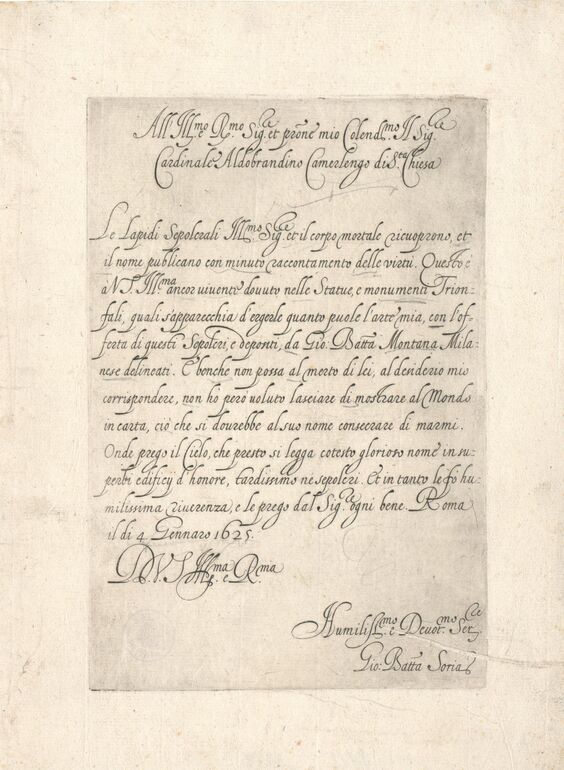 All Ill.mo e R.mo Sig.re et prõne mio Colend.mo Il Sig.re
Cardinale Aldobrandino Camerlengo di S.ta Chiesa
Le Lapidi Sepolcrali Ill.mo Sig.re et il corpo mortale ricuoprono, et
il nome publicano con minuto raccontamento delle virtù. Questo è
a V.S. Ill.ma ancor vivente dovuto nelle Statue, e monumenti Trion-
fali, quali s'apparecchia d'ergerle quanto puole l'arte mia, con l'of-
ferta di questi Sepolcri, e depositi, da Gio. Batta Montana Mila-
nese delineati. E benche non possa al merto di lei, al desiderio mio
corrispondere, non hò però voluto lasciare di mostrare al Mondo
in carta, ciò che si dovrebbe al suo nome consecrare di marmi.
Onde prego il Cielo, che presto si legga cotesto glorioso nome in su-
perbi edificij d'honore, tardissimo ne sepolcri. Et in tanto le fò hu-
milissima riverenza, e le prego dal Sig.re ogni bene. Roma
il di 4 Gennaro 1625.
D.V.S. Ill.ma e R.ma
Humiliss.mo e Devot.mo Ser.re
Gio: Batta Soria